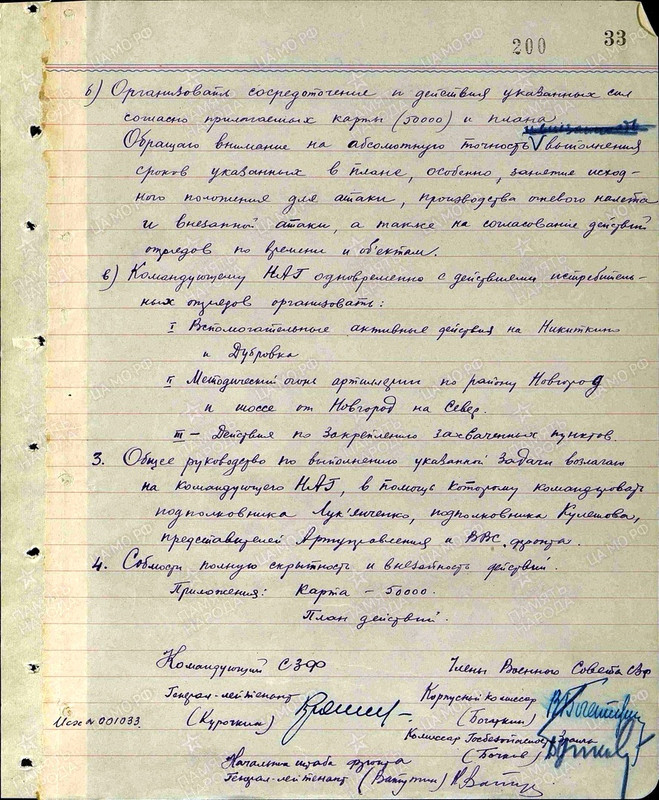 200 33
б) Организовать сосредоточение и действия указанных сил
согласно прилагаемых карты (50000) и плана
Обращаю внимание на абсолютную точность выполнения
сроков указанных в плане, особенно, занятие исход-
ного положения для атаки, производства огневого налета
и внезапной атаки, а также на согласование действий
отрядов по времени и об'ектам.
в) Командующему НАГ одновременно с действиями истребитель-
ных отрядов организовать:
I Вспомогательные активные действия на Никиткино
и Дубровка
II Методический огонь артиллерии по району Новгород
и шоссе от Новгород на Север.
III – Действия по закреплению захваченных пунктов.
3. Общее руководство по выполнению указанной задачи возлагаю
на Командующего НАГ, в помощь которому командировать
подполковника Лук'янченко, подполковника Кулешова,
представителей Артуправления и ВВС фронта.
4. Соблюсти полную скрытность и внезапность действий.
Приложения: Карта – 50000.
План действий.
Командующий СЗФ Члены Военного Совета СЗФ
Генерал-лейтенант Корпусной комиссар
(Курочкин) (Богаткин)
Исх № 001033
Комиссар Госбезопасности
(Бочков)
Начальник штаба фронта
Генерал-лейтенант (Ватутин)
ЦАМО.РФ
ПАМЯТЬ НАРОДА